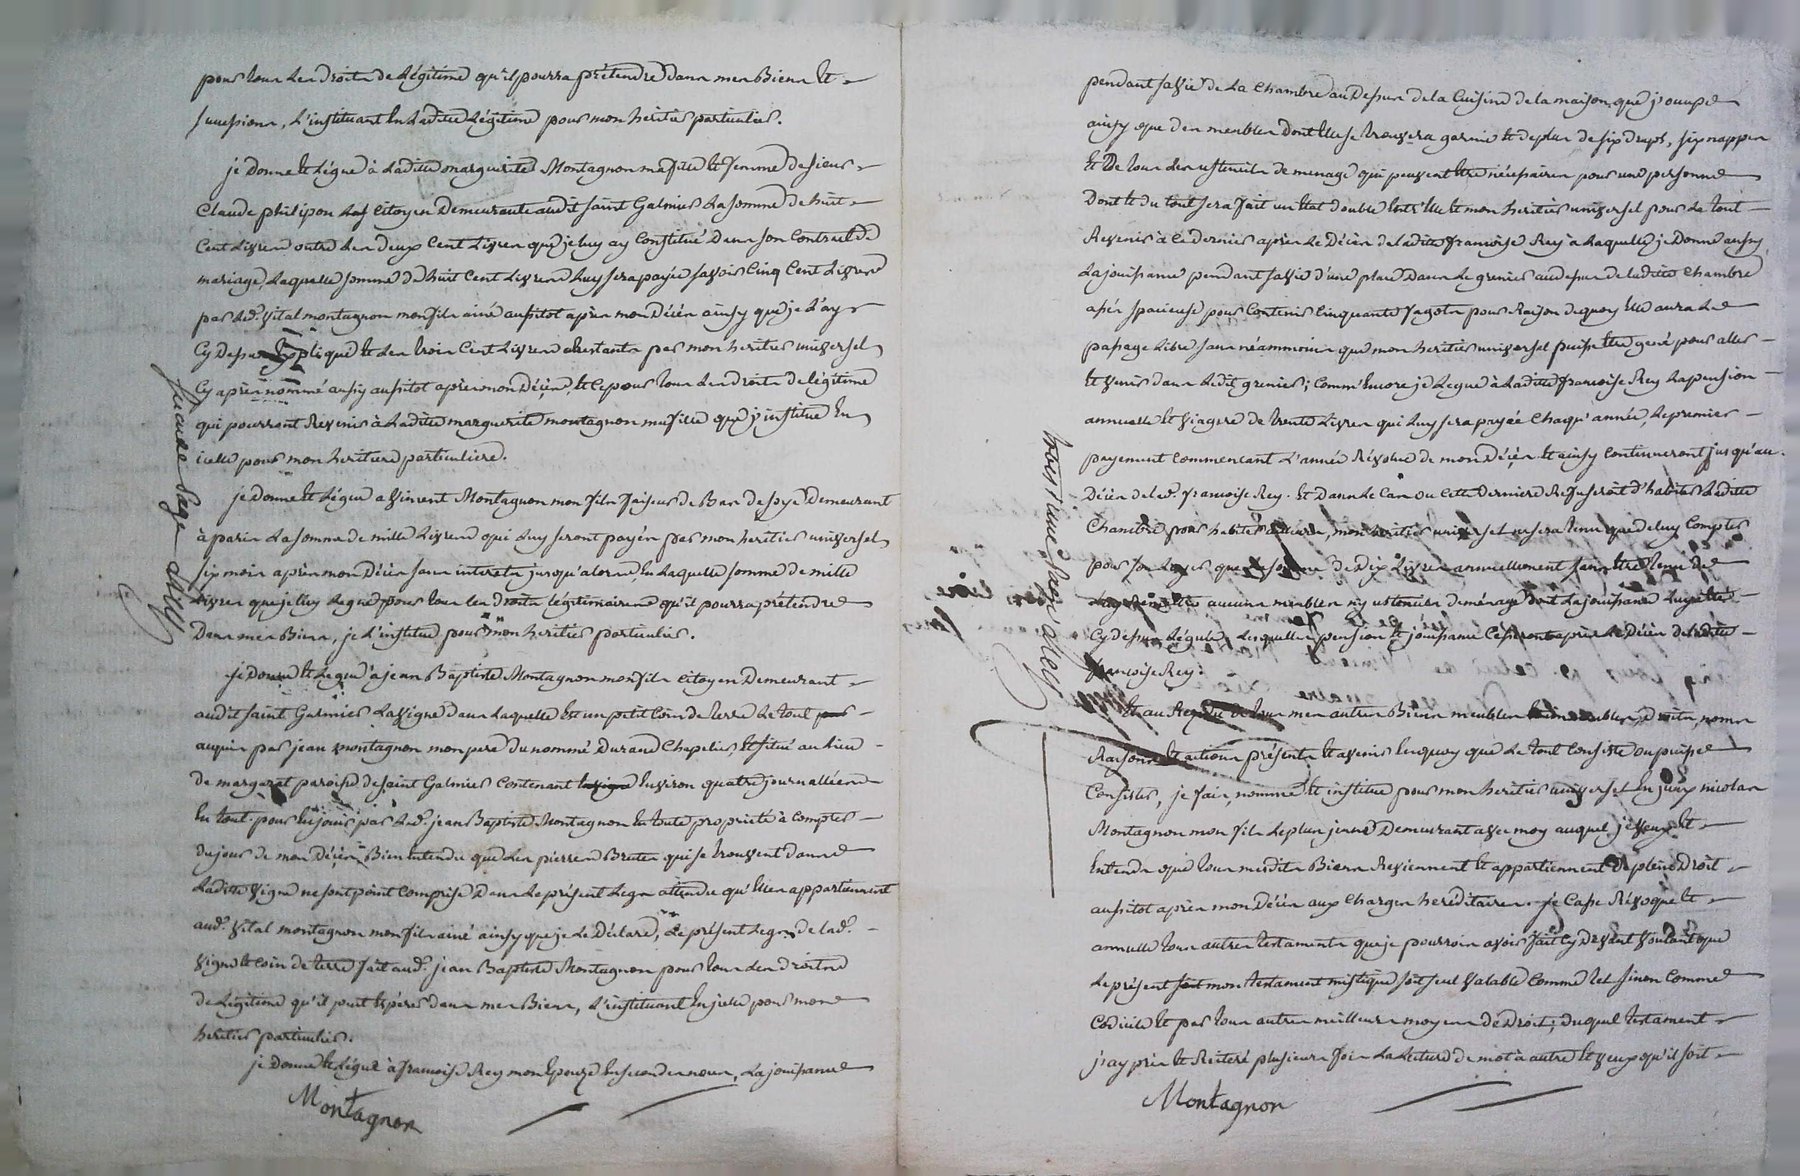 pour tous les droits de légitime qu'il pourra prétendre dans mes Biens et
successions, L'instituant en Laditte Légitime pour mon heritier particulier.
je donne et Légue à Laditte marguerite Montagnon ma fille et femme de sieur
Claude philipon Citoyen Demeurante audit saint Galmier La somme de huit
Cent Livres outre Les deux Cent Livres que je luy ay Constitué Dans son Contract de
mariage, Laquelle somme de huit Cent Livres Luy sera payée savoir Cinq Cent Livres
par Led. Vital montagnon mon fils ainé aussitot après mon Décès ainsy que je L'ay
Cy Dessus Expliqué et Les trois Cent Livres Restants par mon heritier universel
Cy après nommé aussy aussitot après mon Décès, et Ce pour tous Les droits de légitime
qui pourront Revenir à Laditte marguerite montagnon ma fille que j'institue En
icelle pour mon heritiere particuliere.
je donne et Légue a Vincent Montagnon mon fils faiseur de Bas de soye Demeurant
à paris La somme de mille Livres qui Luy seront payés par mon heritier universel
six mois après mon Décès sans interets jusqu'alors, En Laquelle somme de mille
Livres que je luy Légue pour tous les droits légitimaires qu'il pourra prétendre
Dans mes Biens, je L'institue pour mon heritier particulier.
je Donne et Légue à jean Baptiste Montagnon mon fils Citoyen Demeurant
audit saint Galmier La vigne dans Laquelle Est un petit Coin de terre Le tout
acquis par jean montagnon mon pere du nommé Durand Chapelier, et situé au Lieu
de margaret paroisse de saint Galmier Contenant Environ quatre journallées
En tout pour En jouir par Led. jean Baptiste Montagnon En toute propriété à Compter
du jour de mon Décès, Bien Entendu que Les pierres Brutes qui se trouvent dans
Laditte Vigne ne sont point Comprise Dans Le présent Legs attendu qu'Elles appartiennent
aud. Vital montagnon mon fils ainé ainsy que je Le Déclare, Le présent Legs de lad.
Vigne et Coin de terre fait aud. jean Baptiste Montagnon pour tous Les droits
de Légitime qu'il peut Espérer dans mes Biens, L'instituant En jcelle pour mon
heritier particulier.
je Donne et Légue à francoise Rey mon Epouze En secondes noces, La jouissance
Montagnon
pendant sa Vie de La Chambre au Dessus de la Cuisine de la maison que j'occupe
ainsy que des meubles dont Elle se trouvera garnie et de plus de six draps, six nappes
et De tous Les ustenciles de menage qui peuvent Etre nécéssaires pour une personne
Dont et du tout sera fait un Etat double Entr'Elle et mon heritier universel pour Le tout
Revenir à Ce dernier après Le Décès de laditte francoise Rey à Laquelle je Donne aussy
La jouissance pendant sa Vie d'une place Dans Le grenier au dessus de laditte Chambre
assés spacieuse pour Contenir Cinquante fagots pour Raison de quoy Elle aura Le
passage Libre sans néammoins que mon heritier universel puisse Etre gené pour aller
et Venir dans Ledit grenier; Comm'Encore je Legue à Laditte francoise Rey La pension
annuelle et Viagere de trente Livres qui Luy sera payée Chaqu'année, Le premier
payement Commencant L'année Révolue de mon Décès et ainsy Continueront jusqu'au
Décès de lad. francoise Rey. Et Dans Le Cas ou Cette Derniere Refuseroit d'habiter Laditte
Chambre pour habiter ailleurs, mon heritier universel ne sera tenu que de luy Compter
pour son Loyer que La somme de Dix Livres annuellement sans Etre tenu de
aucuns meubles ny ustenciles de ménage dont La jouissance Luy Etre
Cy Dessus Léguée, Lesquelles pension et jouissance Cesseront après Le Décès de laditte
francoise Rey.
Et au Résidu de tous mes autres Biens meubles immeubles, droits, noms
Raisons et actions présents et avenir En quoy que Le tout Consiste ou puisse
Consister, je fais, nomme et institue pour mon heritier universel jean nicolas
Montagnon mon fils Le plus jeune Demeurant avec moy auquel je Veux et
Entends que tous mesdits Biens Reviennent et appartiennent De plein Droit
aussitot après mon Décès aux Charges heréditaires. je Casse Révoque et
annulle tous autres testaments que je pourrois avoir fait Cy Devant Voulant que
Le présent mon testament mistique soit seul Valable Comme tel sinon Comme
Codicile et par tous autres meilleurs moyens de Droit; duquel testament
j'ay pris et Réiteré plusieurs fois La Lecture de mot à autre et Veux qu'il soit
Montagnon